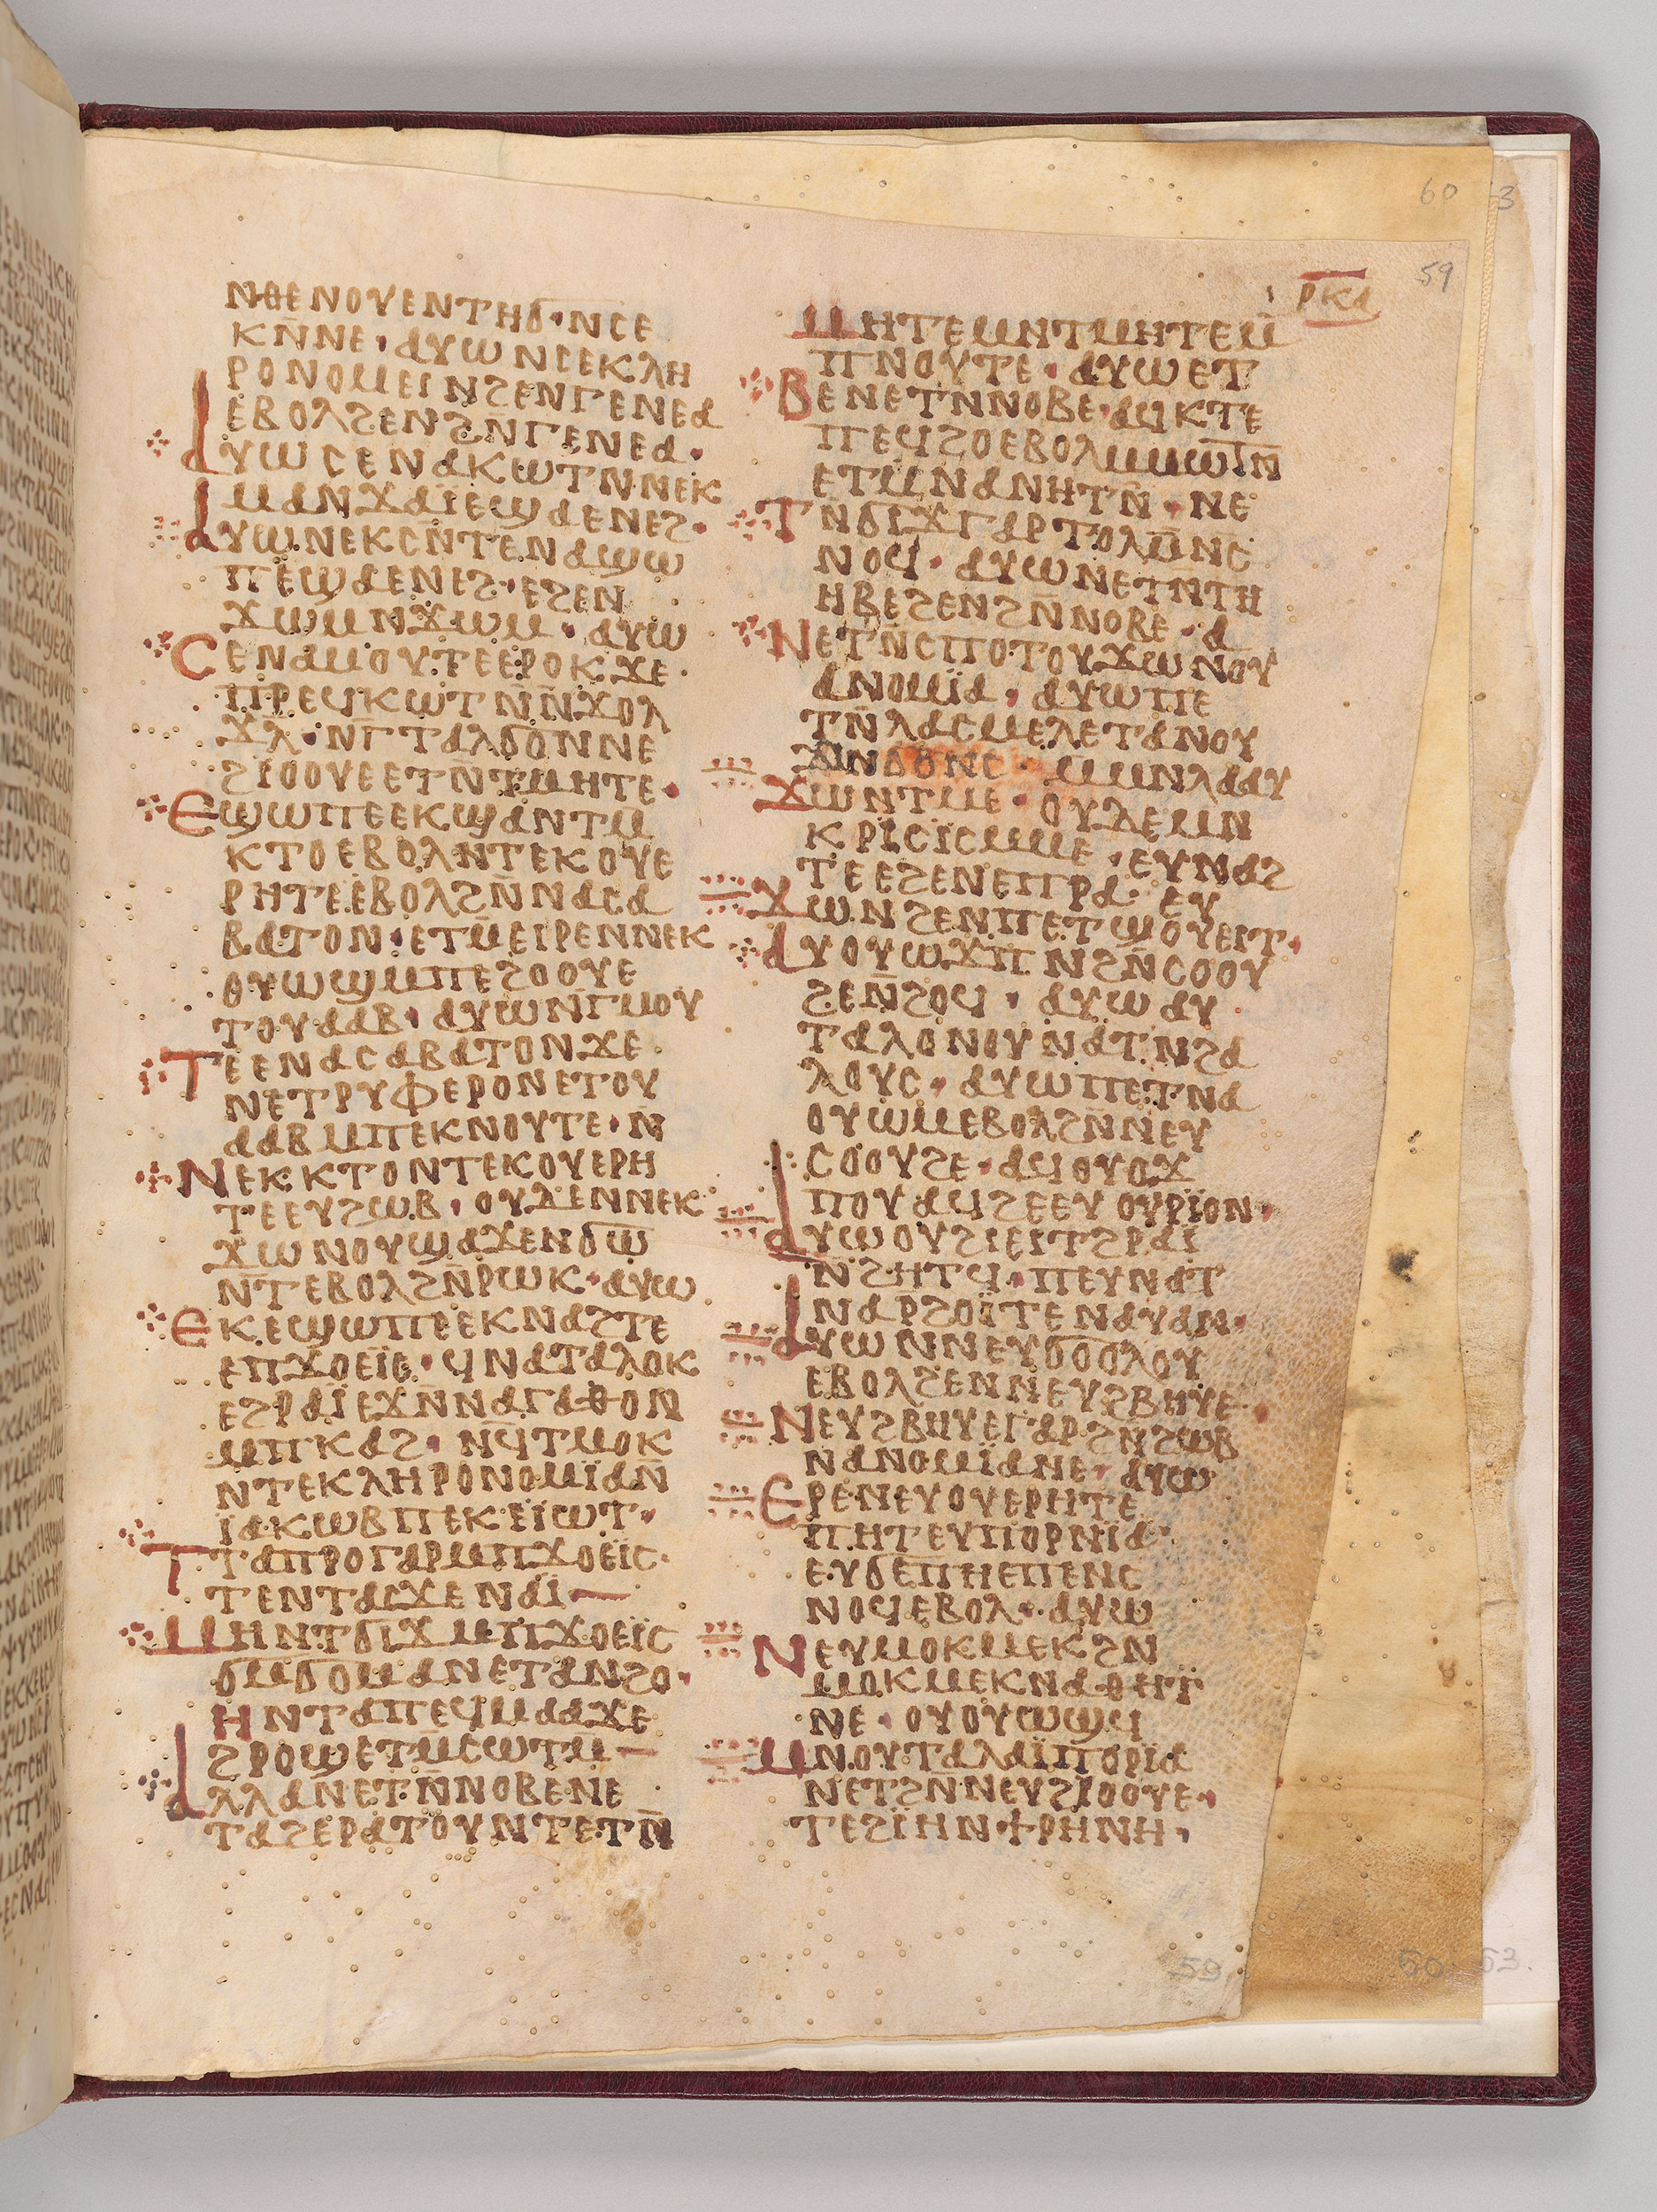 60
3
59
ⲣⲕⲁ
ⲛⲑⲉⲛⲟⲩⲉⲛⲧⲏϭ·ⲛⲥⲉ
ⲕⲛ̄ⲛⲉ· ⲁⲩⲱⲛⲥⲉⲕⲗⲏ
ⲣⲟⲛⲟⲙⲉⲓⲛϩⲉⲛⲅⲉⲛⲉⲁ
ⲉⲃⲟⲗϩⲉⲛϩⲛ̄ⲅⲉⲛⲉⲁ·
ⲁⲩⲱⲥⲉⲛⲁⲕⲱⲧⲛ̄ⲛⲉⲕ
ⲙⲁⲛϫⲁⲓⲉϣⲁⲉⲛⲉϩ·
ⲁⲩⲱⲛⲉⲕⲥⲛ̄ⲧⲉⲛⲁϣⲱ
ⲡⲉϣⲁⲉⲛⲉϩ·ⲉϩⲉⲛ
ϫⲱⲙⲛϫⲱⲙ· ⲁⲩⲱ
ⲥⲉⲛⲁⲙⲟⲩⲧⲉⲉⲣⲟⲕϫⲉ
ⲡⲣⲉϥⲕⲱⲧⲛ̄ⲛ̄ϫⲟⲗ
ϫⲗ̄·ⲛⲅ̄ⲧⲁⲗϭⲟⲛⲛⲉ
ϩⲓⲟⲟⲩⲉⲉⲧⲛ̄ⲧⲙⲏⲧⲉ·
ⲉϣⲱⲡⲉⲉⲕϣⲁⲛⲧⲙ
ⲕⲧⲟⲉⲃⲟⲗⲛⲧⲉⲕⲟⲩⲉ
ⲣⲏⲧⲉⲉⲃⲟⲗϩⲛ̄ⲛⲁⲥⲁ
ⲃⲁⲧⲟⲛ·ⲉⲧⲙⲉⲓⲣⲉⲛⲛⲉⲕ
ⲟⲩⲱϣⲙⲡⲉϩⲟⲟⲩⲉ
ⲧⲟⲩⲁⲁⲃ· ⲁⲩⲱⲛⲅ̄ⲙⲟⲩ
ⲧⲉⲉⲛⲁⲥⲁⲃⲁⲧⲟⲛϫⲉ
ⲛⲉⲧⲣⲩⲫⲉⲣⲟⲛⲉⲧⲟⲩ
ⲁⲁⲃⲙⲡⲉⲕⲛⲟⲩⲧⲉ·ⲛ
ⲛⲉⲕⲕⲧⲟⲛⲧⲉⲕⲟⲩⲉⲣⲏ
ⲧⲉⲉⲩϩⲱⲃ· ⲟⲩⲇⲉⲛⲛⲉⲕ
ϫⲱⲛⲟⲩϣⲁϫⲉⲛϭⲱ
ⲛ̄ⲧⲉⲃⲟⲗϩⲛ̄ⲣⲱⲕ·ⲁⲩⲱ
ⲉⲕⲉϣⲱⲡⲉⲉⲕⲛⲁϩⲧⲉ
ⲉⲡϫⲟⲉⲓ̈ⲥ·ϥⲛⲁⲧⲁⲗⲟⲕ
ⲉϩⲣⲁⲓ̈ⲉϫⲛ̄ⲛⲁⲅⲁⲑⲟⲛ
ⲙⲡⲕⲁϩ·ⲛϥ̄ⲧⲙⲟⲕ
ⲛⲧⲉⲕⲗⲏⲣⲟⲛⲟⲙⲓ̈ⲁⲛ̄
ⲓ̈ⲁⲕⲱⲃⲡⲉⲕⲉⲓ̈ⲱⲧ·
ⲧⲧⲁⲡⲣⲟⲅⲁⲣⲙⲡϫⲟⲉⲓ̈ⲥ
ⲧⲉⲛⲧⲁⲥϫⲉⲛⲁⲓ̈—
ⲙⲏⲛⲧϭⲓϫⲙⲡϫⲟⲉⲓ̈ⲥ
ϭⲙϭⲟⲙⲁⲛⲉⲧⲁⲛϩⲟ·
ⲏⲛⲧⲁⲡⲉϥⲙⲁⲁϫⲉ
ϩⲣⲟϣⲉⲧⲙ̄ⲥⲱⲧⲙ̄—
ⲁⲗⲗⲁⲛⲉⲧⲛ̄ⲛⲟⲃⲉⲛⲉ
ⲧⲁϩⲉⲣⲁⲧⲟⲩⲛⲧⲉⲧⲛ̄
ⲙⲏⲧⲉⲙⲛⲧⲙⲏⲧⲉⲙ̄
ⲡⲛⲟⲩⲧⲉ· ⲁⲩⲱⲉⲧ
ⲃⲉⲛⲉⲧⲛ̄ⲛⲟⲃⲉ·ⲁϥⲕⲧⲉ
ⲡⲉϥϩⲟⲉⲃⲟⲗⲙⲙⲱⲧⲛ̄
ⲉⲧⲙⲛⲁⲛⲏⲧⲛ̄·ⲛⲉ
ⲧⲛϭⲓϫⲅⲁⲣⲧⲟⲗⲙ̄ⲛⲥ
ⲛⲟϥ· ⲁⲩⲱⲛⲉⲧⲛ̄ⲧⲏ
ⲏⲃⲉϩⲉⲛϩⲛ̄ⲛⲟⲃⲉ·ⲁ
ⲛⲉⲧⲛ̄ⲥⲡⲟⲧⲟⲩϫⲱⲛⲟⲩ
ⲁⲛⲟⲙⲓ̈ⲁ· ⲁⲩⲱⲡⲉ
ⲧⲛ̄ⲗⲁⲥⲙⲉⲗⲉⲧⲁⲛⲟⲩ
ϫⲓⲛϭⲟⲛⲥ· ⲙⲙⲛⲗⲁⲁⲩ
ϫⲱⲛⲧⲙⲉ·ⲟⲩⲇⲉⲙⲛ
ⲕⲣⲓⲥⲓ̈ⲥⲙⲙⲉ·ⲉⲩⲛⲁϩ
ⲧⲉⲉϩⲉⲛⲉⲡⲣⲁ· ⲉⲩ
ϫⲱⲛϩⲉⲛⲡⲉⲧϣⲟⲩⲉⲓⲧ·
ⲁⲩⲟⲩⲱϫⲡⲛϩⲛ̄ⲥⲟⲟⲩ
ϩⲉⲛ̄ϩⲟϥ· ⲁⲩⲱⲁⲩ
ⲧⲁⲗⲟⲛⲟⲩⲛⲁⲧⲛϩⲁ
ⲗⲟⲩⲥ·ⲁⲩⲱⲡⲉⲧⲛⲁ
ⲟⲩⲱⲙⲉⲃⲟⲗϩⲛ̄ⲛⲉⲩ
ⲥⲟⲟⲩϩⲉ·ⲁϥⲟⲩⲟϫ
ⲡⲟⲩⲁϥϩⲉⲉⲩⲟⲩⲣⲓ̈ⲟⲛ·
ⲁⲩⲱⲟⲩϩⲓⲉⲓⲧϩⲣⲁⲓ̈
ⲛϩⲏⲧϥ·ⲡⲉⲩⲛⲁⲧ
ⲛⲁⲣϩⲟⲓ̈ⲧⲉⲛⲁⲩⲁⲛ·
ⲁⲩⲱⲛⲛⲉⲩϭⲟⲟⲗⲟⲩ
ⲉⲃⲟⲗϩⲉⲛⲛⲉⲩϩⲃⲏⲩⲉ·
ⲛⲉⲩϩⲃⲏⲩⲉⲅⲁⲣϩⲛϩⲱⲃ
ⲛⲁⲛⲟⲙⲓ̈ⲁⲛⲉ·ⲁⲩⲱ
ⲉⲣⲉⲛⲉⲩⲟⲩⲉⲣⲏⲧⲉ
ⲡⲏⲧⲉⲩⲡⲟⲣⲛⲓ̈ⲁ·
ⲉⲩϭⲉⲡⲏⲉⲡⲉⲛⲥ
ⲛⲟϥⲉⲃⲟⲗ·ⲁⲩⲱ
ⲛⲉⲩⲙⲟⲕⲙⲉⲕϩⲛ
ⲙⲟⲕⲙⲉⲕⲛⲁⲑⲏⲧ
ⲛⲉ·ⲟⲩⲟⲩⲱϣϥ
ⲙⲛⲟⲩⲧⲁⲗⲁⲓ̈ⲡⲟⲣⲓ̈ⲁ
ⲛⲉⲧϩⲛ̄ⲛⲉⲩϩⲓⲟⲟⲩⲉ·
ⲧⲉϩⲓ̈ⲏⲛϯⲣⲏⲛⲏ·
59
60
63.